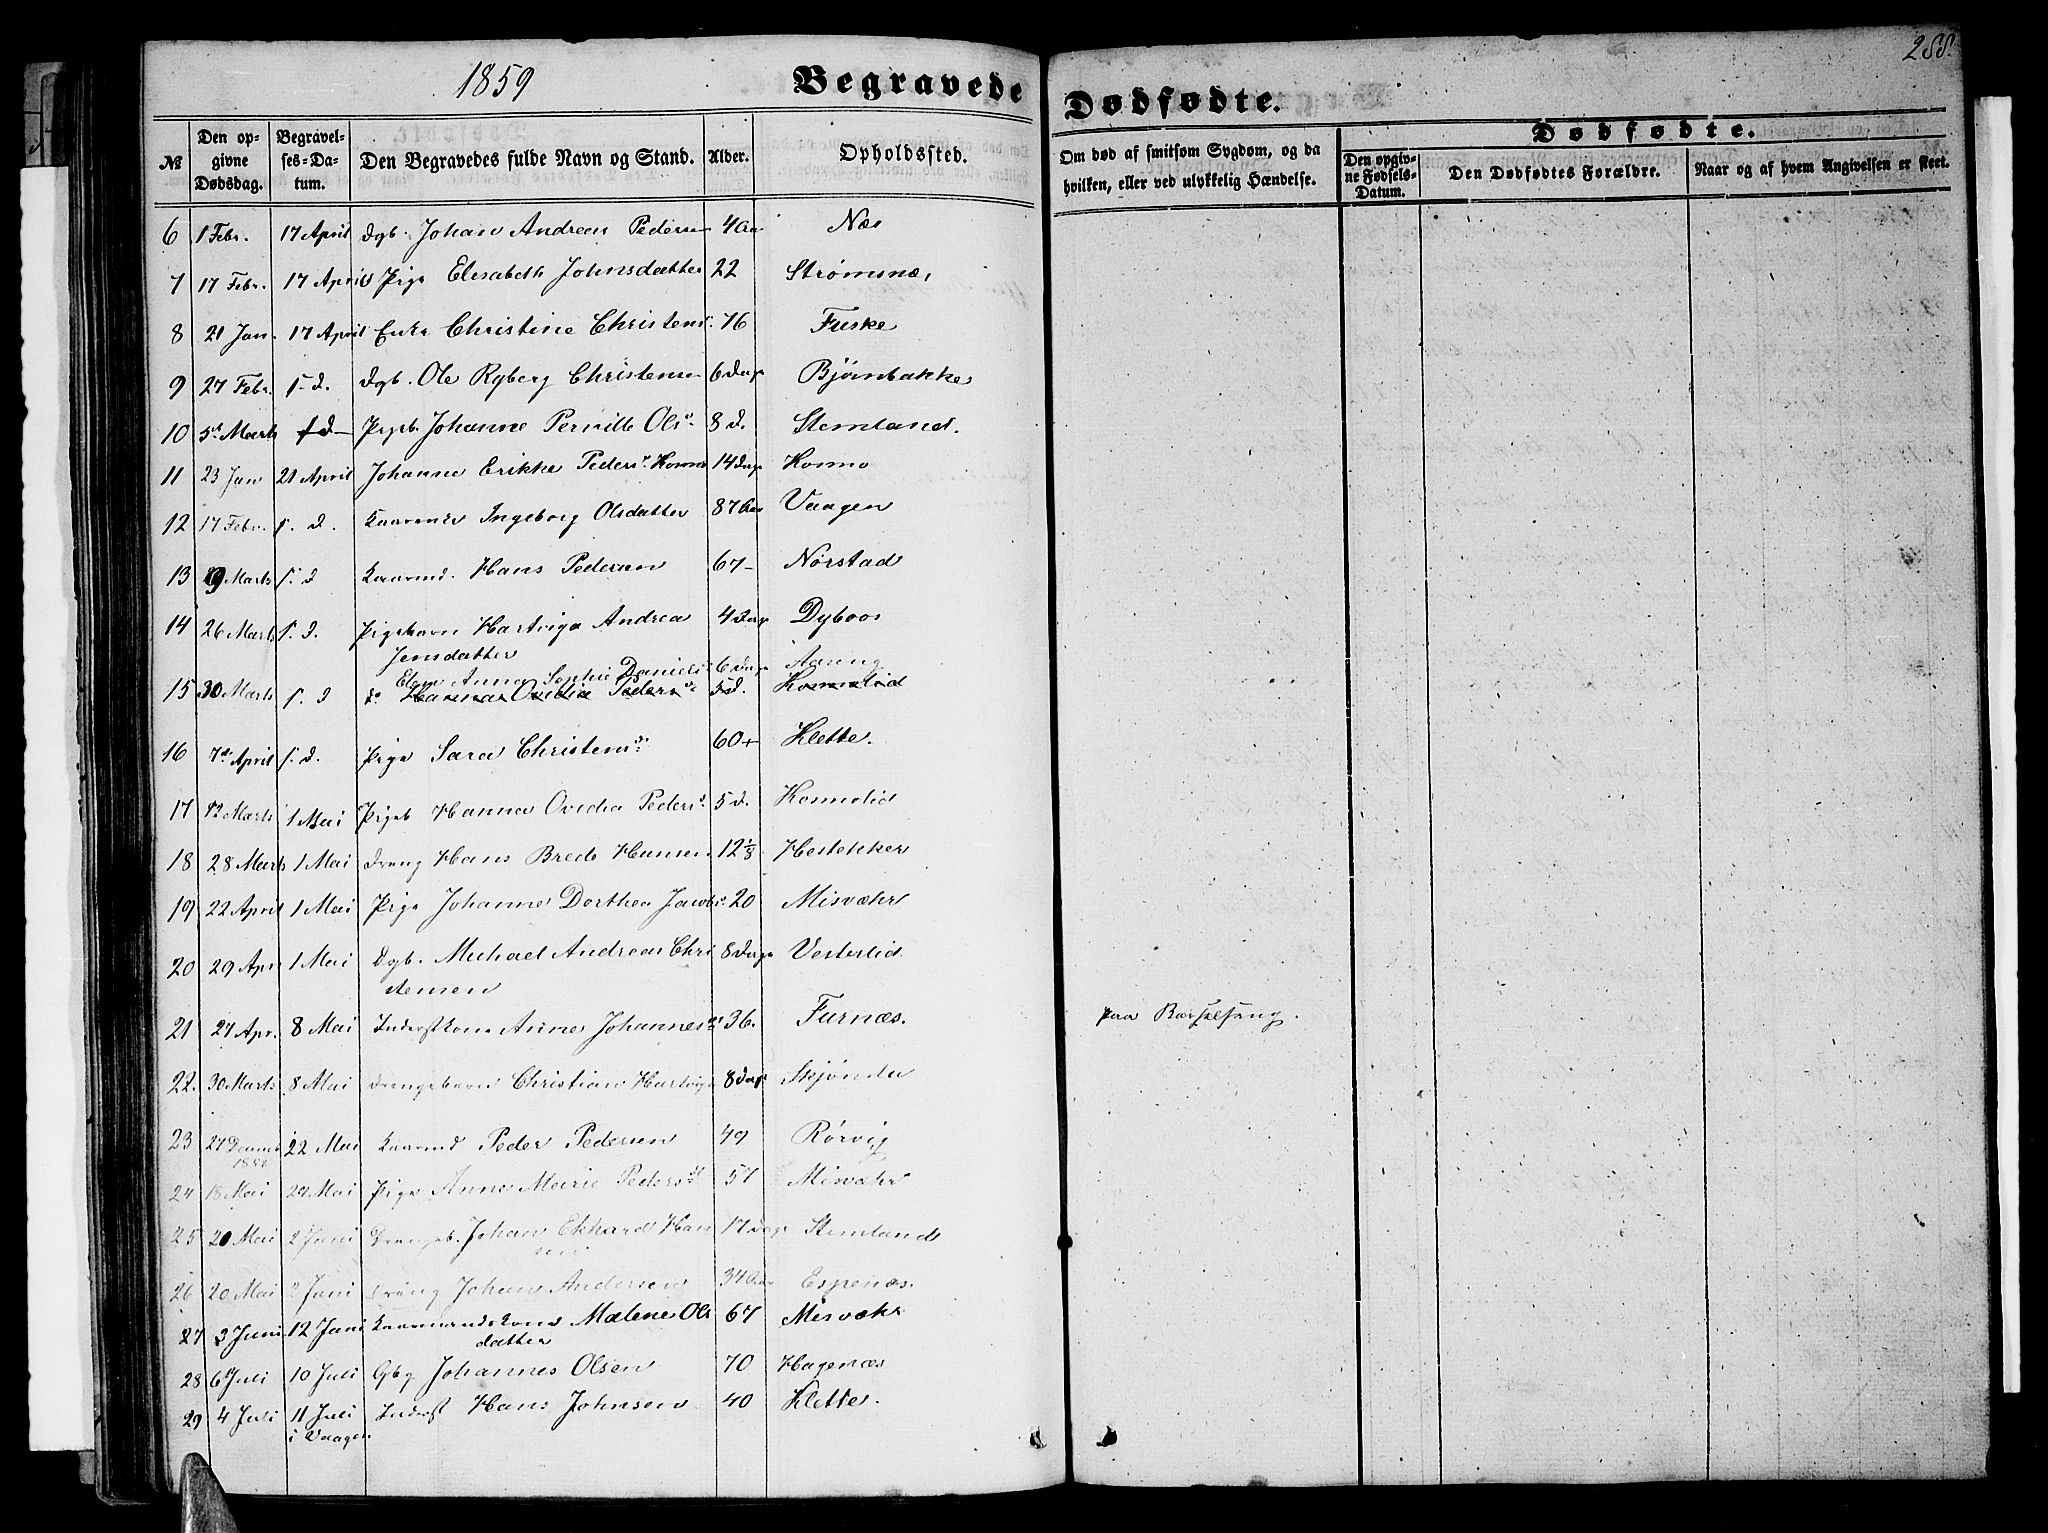 288.
1859
Begravede
Dødfødte.
№
Den opgivne Dødsdag.
Begravelses-Datum.
Den Begravedes fulde Navn og Stand.
Alder.
Opholdssted.
Om død af smitsom Sygdom, og da hvilken, eller ved ulykkelig Hændelse.
Dødfødte.
Den opgivne Fødsels-Datum.
Den Dødfødtes Forældre.
Naar og af hvem Angivelsen er skeet.
6 1 Febr. 17 April Dgb. Johan Andreas Pedersen 4 Aar Næs
7 17 Febr. 17 April Pige Elisabeth Johnsdatter 22 Strømsnæs
8 21 Jan. 17 April Enke Christine Christensd. 76 Fuske
9 27 Febr. s. d. Dgb. Ole Ryberg Christensen 6 Dage Bjørnbakke
10 5d Marts s. d. Pigeb. Johanne Pernille Olsd. 8 d. Stemland.
11 23 Jan 21 April Johanna Erikke Pedersd. Konmo 14 Dage Konmo
12 17 Febr. s. d. Kaarenke Ingeborg Olsdatter 87 Aar Vaagen
13 19 Marts s. d Kaarmd. Hans Pedersen 67 - Nørstad
14 26 Marts s. d. Pigebarn Hartviga Andrea 4 Dage Dyboos
Jensdatter
Elen Anna Sophie Danielsd. 6 Dage Aaseng
15 30 Marts s. d do Hanna Ovidia Pedersd. 5 d. Konmolid
16 7d April s. d. Pige Sara Christensd. 60 Klette.
17 12 Marts 1 Mai Pigeb Hanna Ovidia Pedersd. 5 d. Konmolid
18 28 Marts 1 Mai Dreng Hans Brede Hansen 12 1/3 Hestekker
19 22 April 1 Mai Pige Johanna Dorthea Jacobsd. 20 Misvæhr
20 29 Apr 1 Mai Dgb. Michael Andreas Chri 8 Dage Vesterlid
stensen
21 27 Apr. 8 Mai Inderstkone Anne Johannesd. 36. Furnæs. paa Barselseng.
22. 30 Marts 8 Mai Drengebarn Christian Hartvig 8 Dage Skjønda
23 27 Decemb 22 Mai Kaarmd Peder Pedersen 49 Rørvig
1858
24 18 Mai 29 Mai Pige Anne Marie Pedersd. 57 Misvæhr
25 20 Mai 2 Juni Drengeb. Johan Ekhard Han 17 Dage Stemland
sen
26 20 Mai 2 Juni Dreng Johan Andersen 34 Aar Espenæs.
27 3 Juni 12 Juni Kaarmandskone Malene Ols 67 Misvæhr
datter
28 6d Juli 10 Juli Gbg Johannes Olsen 70 Hagenæs
29 4 Juli 11 Juli Inderst Hans Johnsen 40 Klette.
i Vaagen